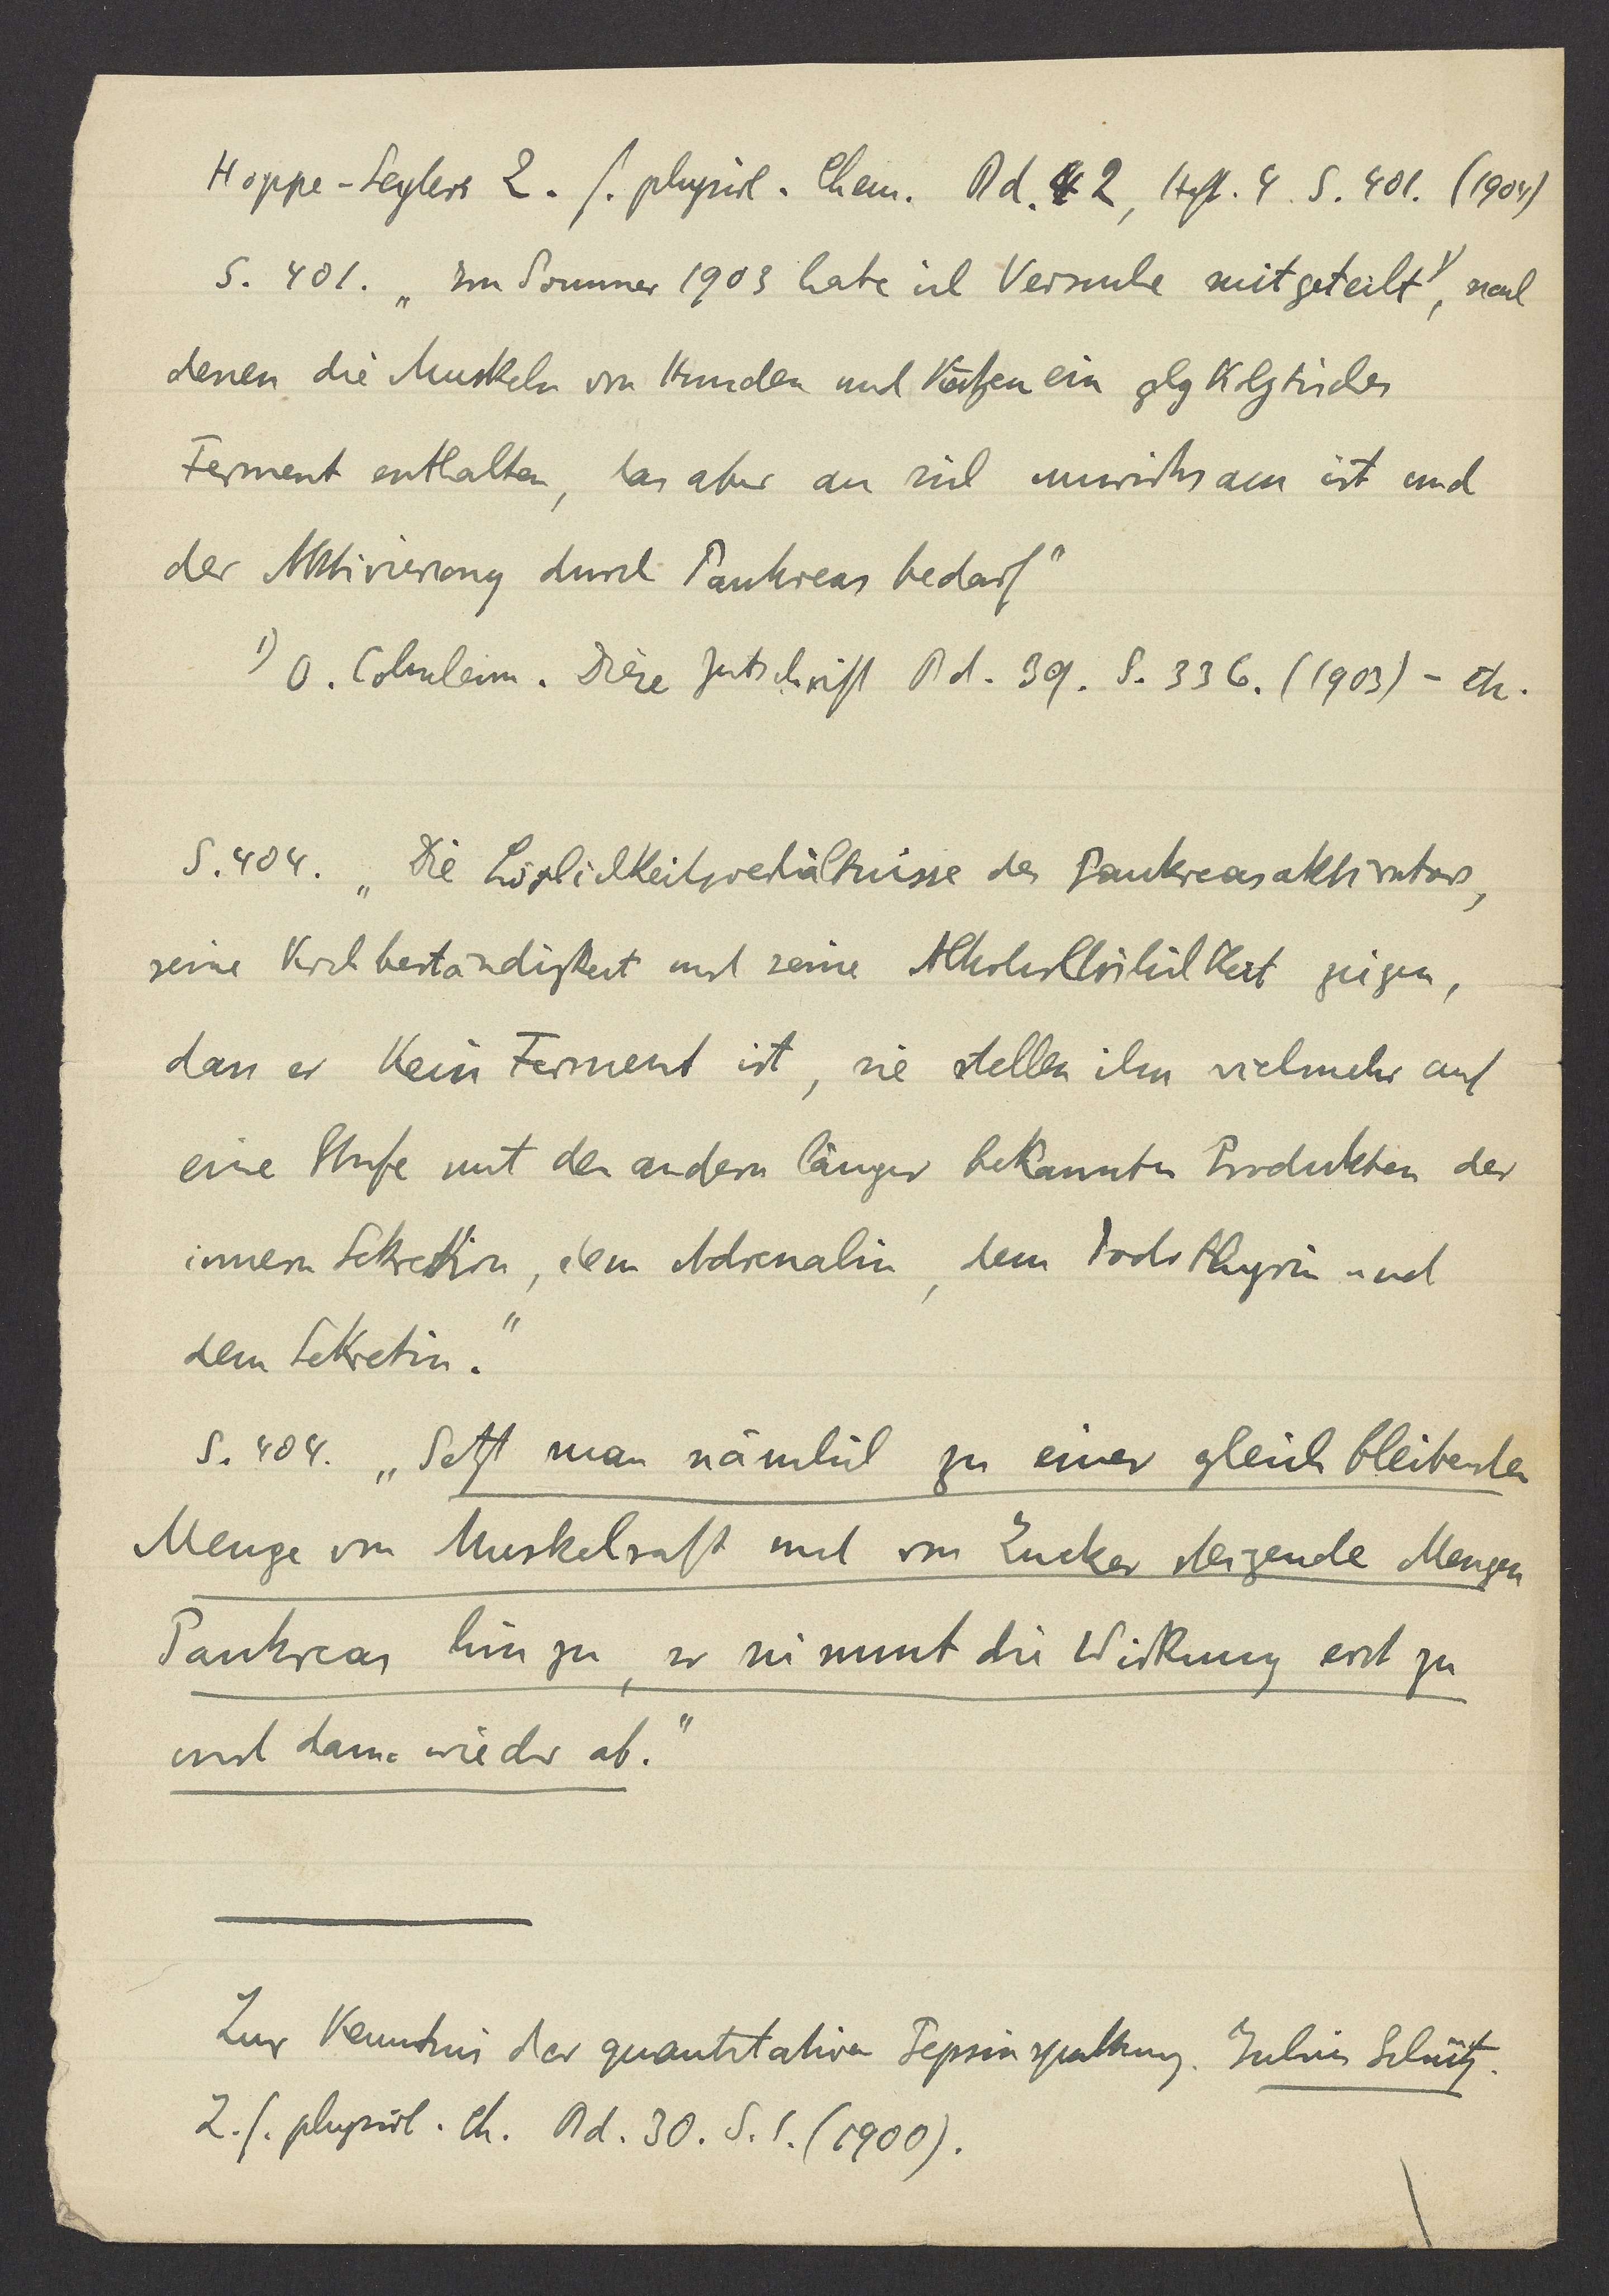 Hoppe-Seylers Z. f. physiol. Chem. Bd. 42, Heft. 4 S. 401. (1904)
S. 401. „Im Sommer 1903 habe ich Versuche mitgeteilt¹⁾, nach
denen die Muskeln von Hunden und Katzen ein glykolytisches
Ferment enthalten, das aber an sich unwirksam ist und
der Aktivierung durch Pankreas bedarf"
¹⁾ O. Cohnheim. Diese Zeitschrift Bd. 39. S. 336. (1903) - etc.
S. 404. „Die Löslichkeitsverhältnisse des Pankreasaktivators,
seine Kochbeständigkeit und seine Alkohollöslichkeit zeigen,
dass er kein Ferment ist, sie stellen ihn vielmehr auf
eine Stufe mit den andern länger bekannten Produkten der
innern Sekretion, dem Adrenalin, dem Jodothyrin und
dem Sekretin."
S. 404. „Setzt man nämlich zu einer gleich bleibenden
Menge von Muskelsaft und von Zucker steigende Mengen
Pankreas hinzu, so nimmt die Wirkung erst zu
und dann wieder ab."
Zur Kenntnis der quantitativen Pepsinspaltung. Julius Schütz.
Z. f. physiol. Ch. Bd. 30. S. 1. (1900).